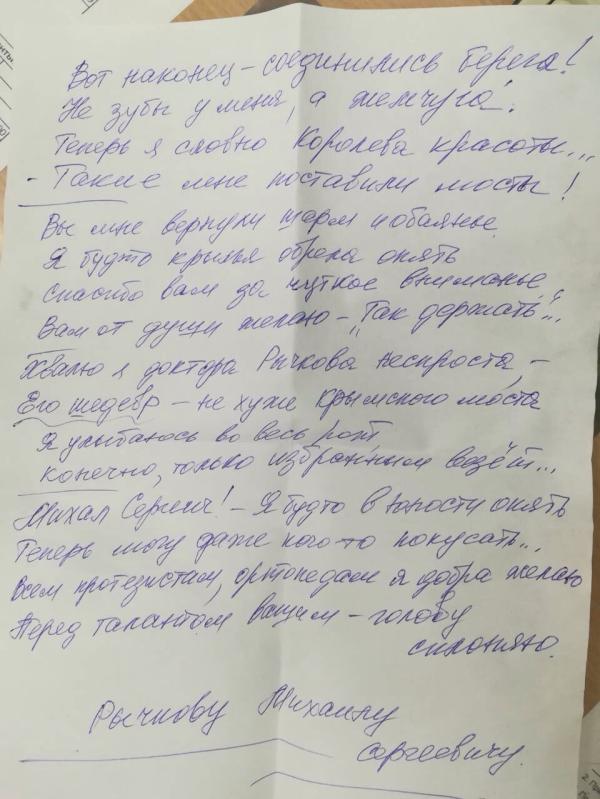 Вот наконец - соединились берега!
Не зубы у меня, а жемчуга.
Теперь я словно Королева красоты...
- Такие мне поставили мосты!
Вы мне вернули шарм и обаянье.
Я будто крылья обрела опять
Спасибо вам за чуткое вниманье,
Вам от души желаю - "Так держать"...
Хвалю я доктора Рычкова неспроста, -
Его шедевр - не хуже Крымского моста
Я улыбаюсь во весь рот,
Конечно, только избранным везёт...
Михал Сергеич! - Я будто в юности опять
Теперь могу даже кого-то покусать...
Всем протезистам, ортопедам я добра желаю
Перед талантом вашим - голову
склоняю.
Рычкову Михаилу
Сергеевичу.